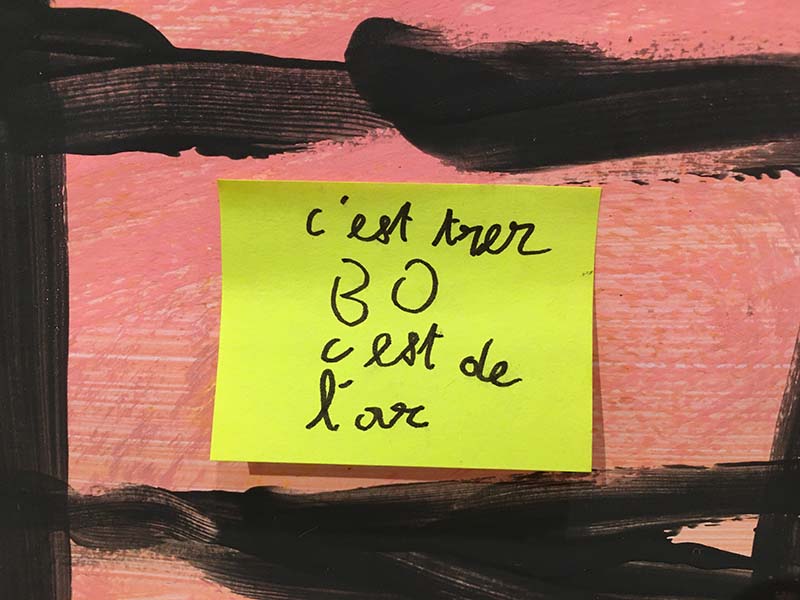 c'est trer
BO
c est de
l'ar